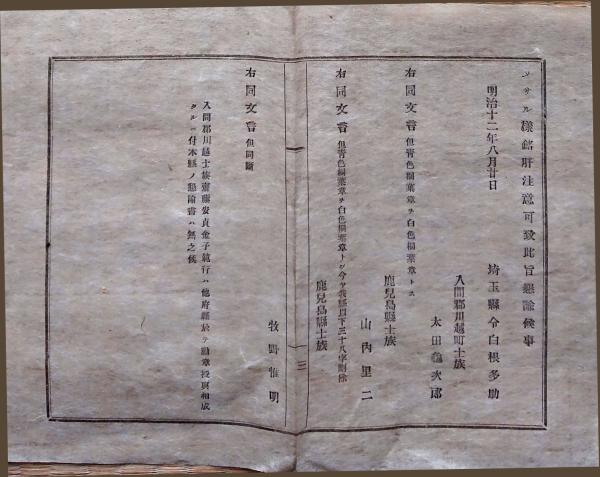 ソサル樣銘肝注意可致此旨懇諭候事
明治十二年八月廿日
埼玉縣令白根多助
入間郡川越町士族
太田龜次郎
右同文言但青色桐葉章ヲ白色桐葉章トス
鹿兒島縣士族
山内里二
右同文言但青色桐葉章ヲ白色桐葉章トシ今ヤ我縣以下三十八字刪除
鹿兒島縣士族
三
牧野惟明
右同文言但同斷
入間郡川越士族齋藤安貞金子範行ハ他府縣於テ勳章授與相成
タルニ付本縣ノ懇諭書ハ無之候